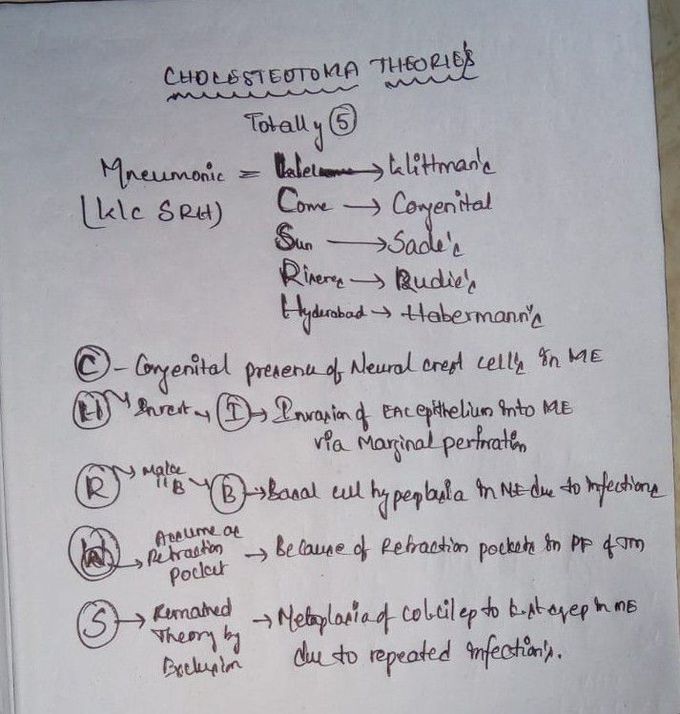 CHOLESTEOTOMA THEORIES
Totally 5
Mneumonic = → Wittman's
(W/C SRH) Come → Congenital
Sun → Sade's
→ Rudie's
Hyderabad → Habermann's
C - Congenital presence of Neural crest cells in ME
H → Invert → I → Invasion of EAC epithelium into ME
via Marginal perforation
R → Make "B → B → Basal cell hyperplasia in ME due to infections
W → Assume as Retraction pocket → Because of Retraction pockets in PF of TM
S → Remained Theory by Exclusion → Metaplasia of ep to ep in ME
due to repeated infection's.